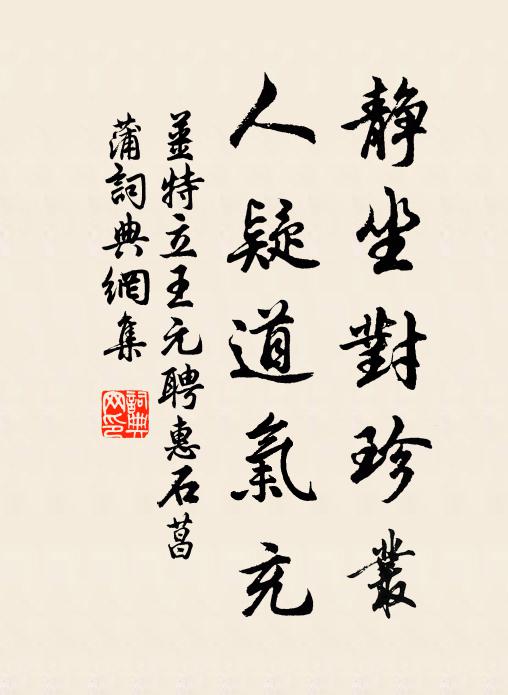 靜坐對珍叢
人疑道氣充
姜特立王元聘惠石菖
蒲詞典網集
詞典
网印